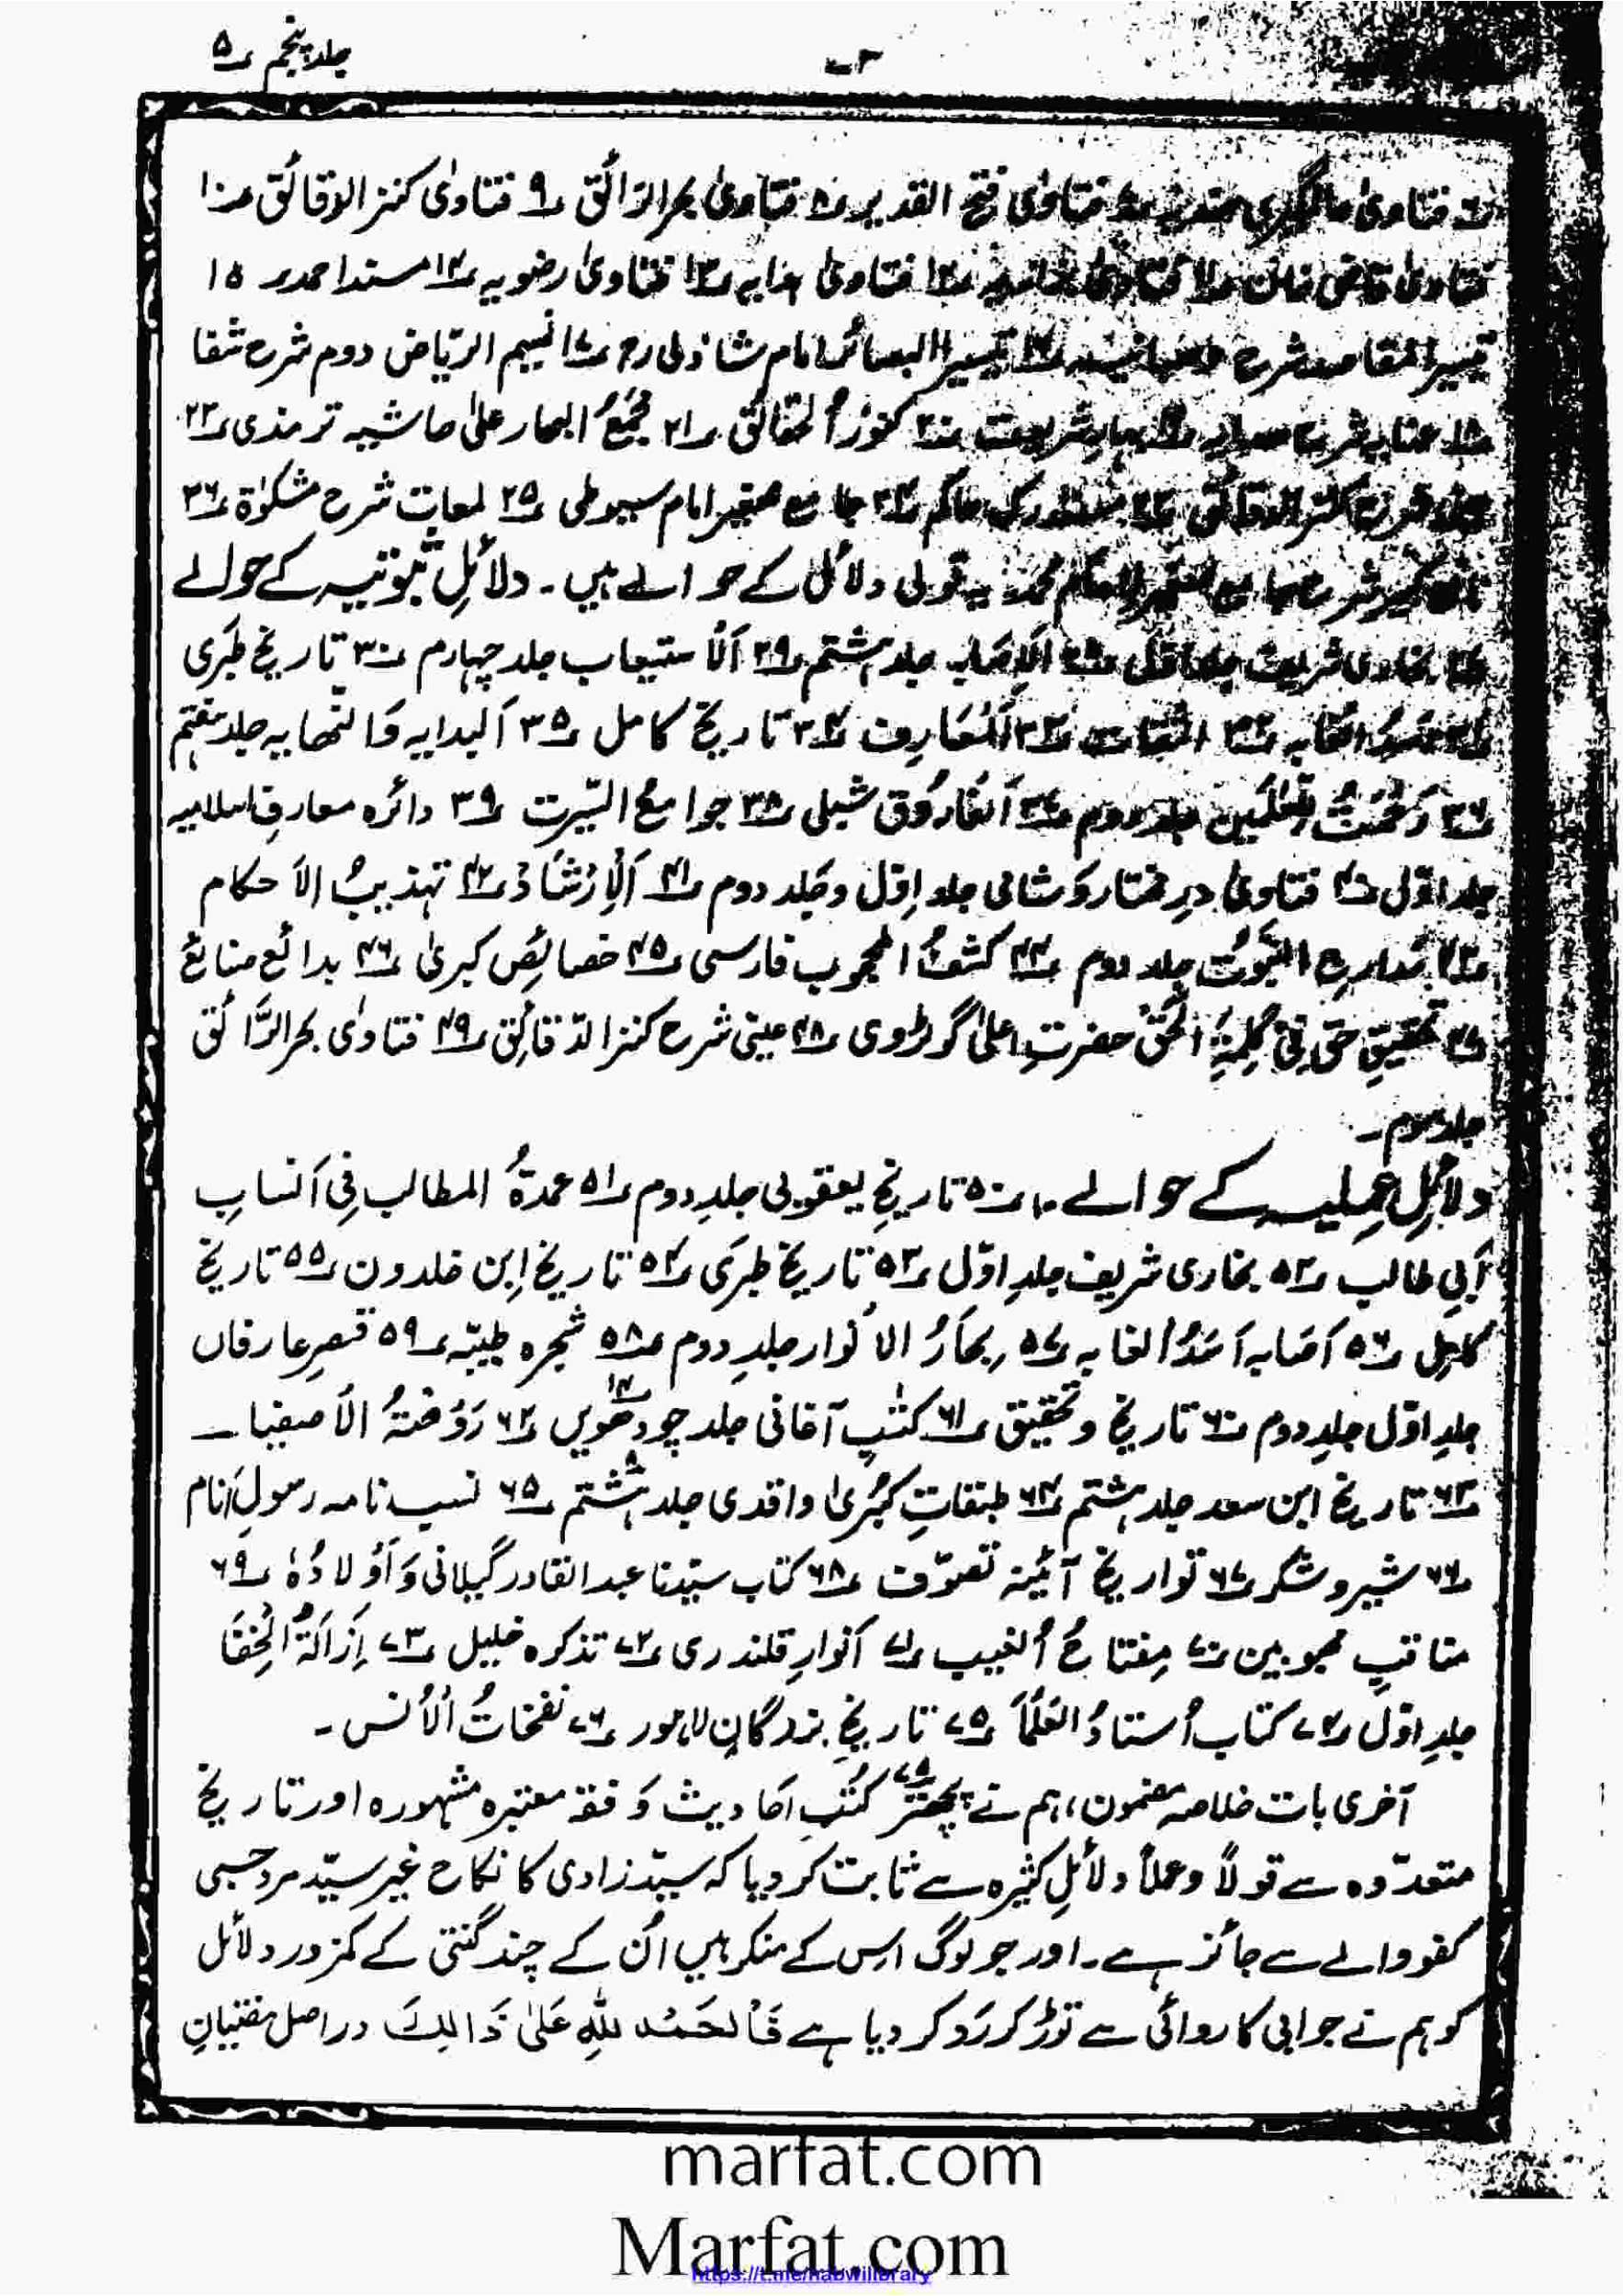 جلد پنجم ۵
۳
فتاویٰ عالمگیری فتاوٰی فتح القدیر ۸ فتاویٰ بحرالرّائق ۹ فتاویٰ کنز الوقائق ۱۰
فتاویٰ قاضی خان ۱۱ فتاویٰ ۱۲ فتاویٰ ۱۳ فتاویٰ رضویہ ۱۴ مسند احمد ۱۵
تیسیر المقاصد شرح ۱۶ تیسیر البصائر امام شاذلی رح ۱۷ نسیم الریّاض دوم شرح شفا
۱۸ عنایہ شرح ھدایہ ۱۹ بہار شریعت ۲۰ کنوزُ الحقائق ۲۱ مجمعُ البحار علیٰ حاشیہ ترمذی ۲۲
شرح کنز الوقائق ۲۳ مستدرک حاکم ۲۴ جامع صغیر امام سیوطی ۲۵ لمعات شرح مشکوٰۃ ۲۶
شرح جامع الصغیر امام محمد یہ قولی دلائل کے حوالے ہیں۔ دلائلِ ثبوتیہ کے حوالے
۲۷ بخاری شریف جلد اوّل ۲۸ اَلاِصابہ جلد ہشتم ۲۹ اَلْاستیعاب جلد چہارم ۳۰ تاریخ طبَری
۳۱ اُسُدُ الغابہ ۳۲ الثقات ۳۳ اَلْمَعَارِف ۳۴ تاریخ کامل ۳۵ اَلبدایہ وَالنّھایہ جلد ہفتم
۳۶ رَحْمَتُ لِّلْعٰلَمِین جلد دوم ۳۷ اَلفَارُوق شبلی ۳۸ جوامعُ السّیرت ۳۹ دائرہ معارفِ اسلامیہ
جلد اوّل ۴۰ فتاویٰ درِ مختار وَ شامی جلد اوّل و جلد دوم ۴۱ اَلْاِرْشَادُ ۴۲ تہذیبُ الاَحکام
۴۳ مَدارجُ النّبوّت جلد دوم ۴۴ کشفُ المحجوب فارسی ۴۵ خصائِص کبریٰ ۴۶ بدائع صنائع
۴۷ تحقیقِ حق فِیْ کَلِمَۃِ الْحَقْ حضرتِ اعلیٰ گولڑوی ۴۸ عینی شرح کنز الدّقائِق ۴۹ فتاوٰی بحر الرَّائق
جلد سوم۔
دلائلِ عملیہ کے حوالے۔ ۵۰ تاریخِ یعقوبی جلدِ دوم ۵۱ عمدۃُ المطالب فِی اَنسابِ
اَبی طالب ۵۲ بخاری شریف جلدِ اوّل ۵۳ تاریخ طبَری ۵۴ تاریخ اِبن خلدون ۵۵ تاریخ
کامِل ۵۶ اَصابہ اَسَدُ الغابہ ۵۷ بِحَارُ الاَنوار جلدِ دوم ۵۸ شجرہ طیّبہ ۵۹ قصرِ عارفاں
جلدِ اوّل جلدِ دوم ۶۰ تاریخ و تحقیق ۶۱ کتابِ آغانی جلد چودھویں ۱۴ ۶۲ رَوْضَۃُ الاَصفیا۔
۶۳ تاریخ ابن سعد جلد ہشتم ۶۴ طبقاتِ کبُریٰ واقدی جلد ہشتم ۸ ۶۵ نسب نامہ رسولِ اَنام
۶۶ شیر و شکر ۶۷ تواریخ آئینہ تصوّف ۶۸ کتاب سیّدنا عبدالقادر گیلانی وَ اَوْلادُہٗ ۶۹
مناقبِ محبوبین ۷۰ مِفتاحُ الغیب ۷۱ اَنوارِ قلندری ۷۲ تذکرہ خلیل ۷۳ اِزَالَۃُ الْخِفَا
جلدِ اوّل ۷۴ کتاب اُستادُ العُلَمَا ۷۵ تاریخِ بزرگانِ لاہور ۷۶ نَفحَاتُ الْاُنس۔
آخری بات خلاصہ مضمون، ہم نے پچھتر ۷۵ کُتبِ احَادیث وَ فقہ معتبرہ مشہورہ اور تاریخ
متعدّدہ سے قولاً و عملاً دلائلِ کثیرہ سے ثابت کر دیا کہ سیّد زادی کا نکاح غیر سیّد مرد حسبی
کفو والے سے جائز ہے۔ اور جو لوگ اِس کے منکر ہیں اُن کے چند گنتی کے کمزور دلائل
کو ہم نے جوابی کاروائی سے توڑ کر رَد کر دیا ہے فَالْحَمْدُ لِلّٰہِ عَلیٰ ذَالِکَ دراصل مفتیانِ
marfat.com
Marfat.com
https://t.me/nabwilibrary